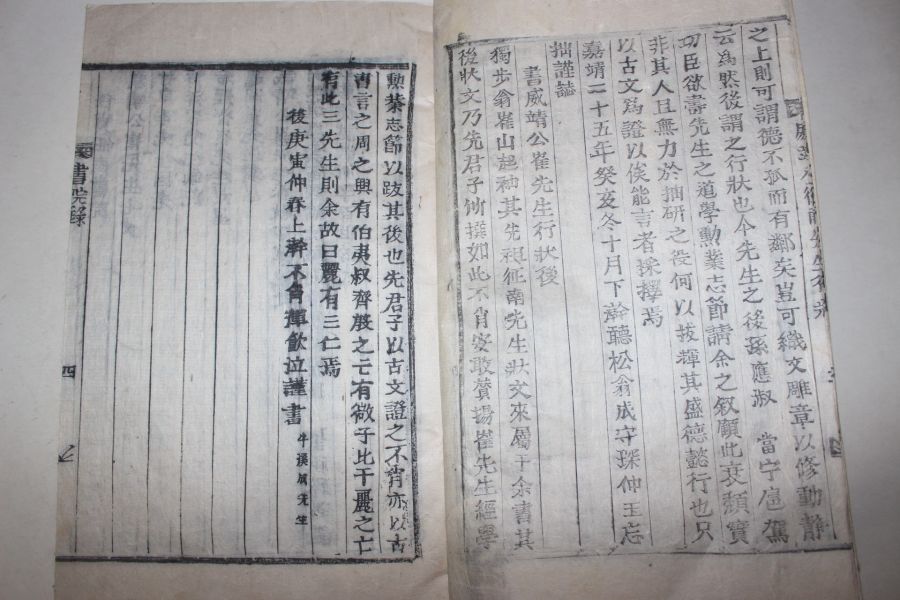 之上則可謂德不孤而有鄰矣豈可織文雕章以修動靜
云爲然後謂之行狀也今先生之後孫應淑 當宁扈駕
功臣欲壽先生之道學勳業志節請余之叙願此衰頹實
非其人且無力於抽研之役何以拔輝其盛德懿行也只
以古文爲證以俟能言者採擇焉
嘉靖二十五年癸亥冬十月下澣聽松翁成守琛仲玉忘
拙謹誌
書威靖公崔先生行狀後
獨步翁崔山起袖其先祖征南先生狀文來屬于余書其
後狀文乃先君子所撰如此不肖安敢贊揚崔先生經學
勳業志節以跋其後也先君子以古文證之不肖亦以古
書言之周之興有伯夷叔齊殷之亡有微子比干麗之亡
有此三先生則余故曰麗有三仁焉
後庚寅仲春上澣不肖渾飮泣謹書 牛溪成先生
書院錄
四